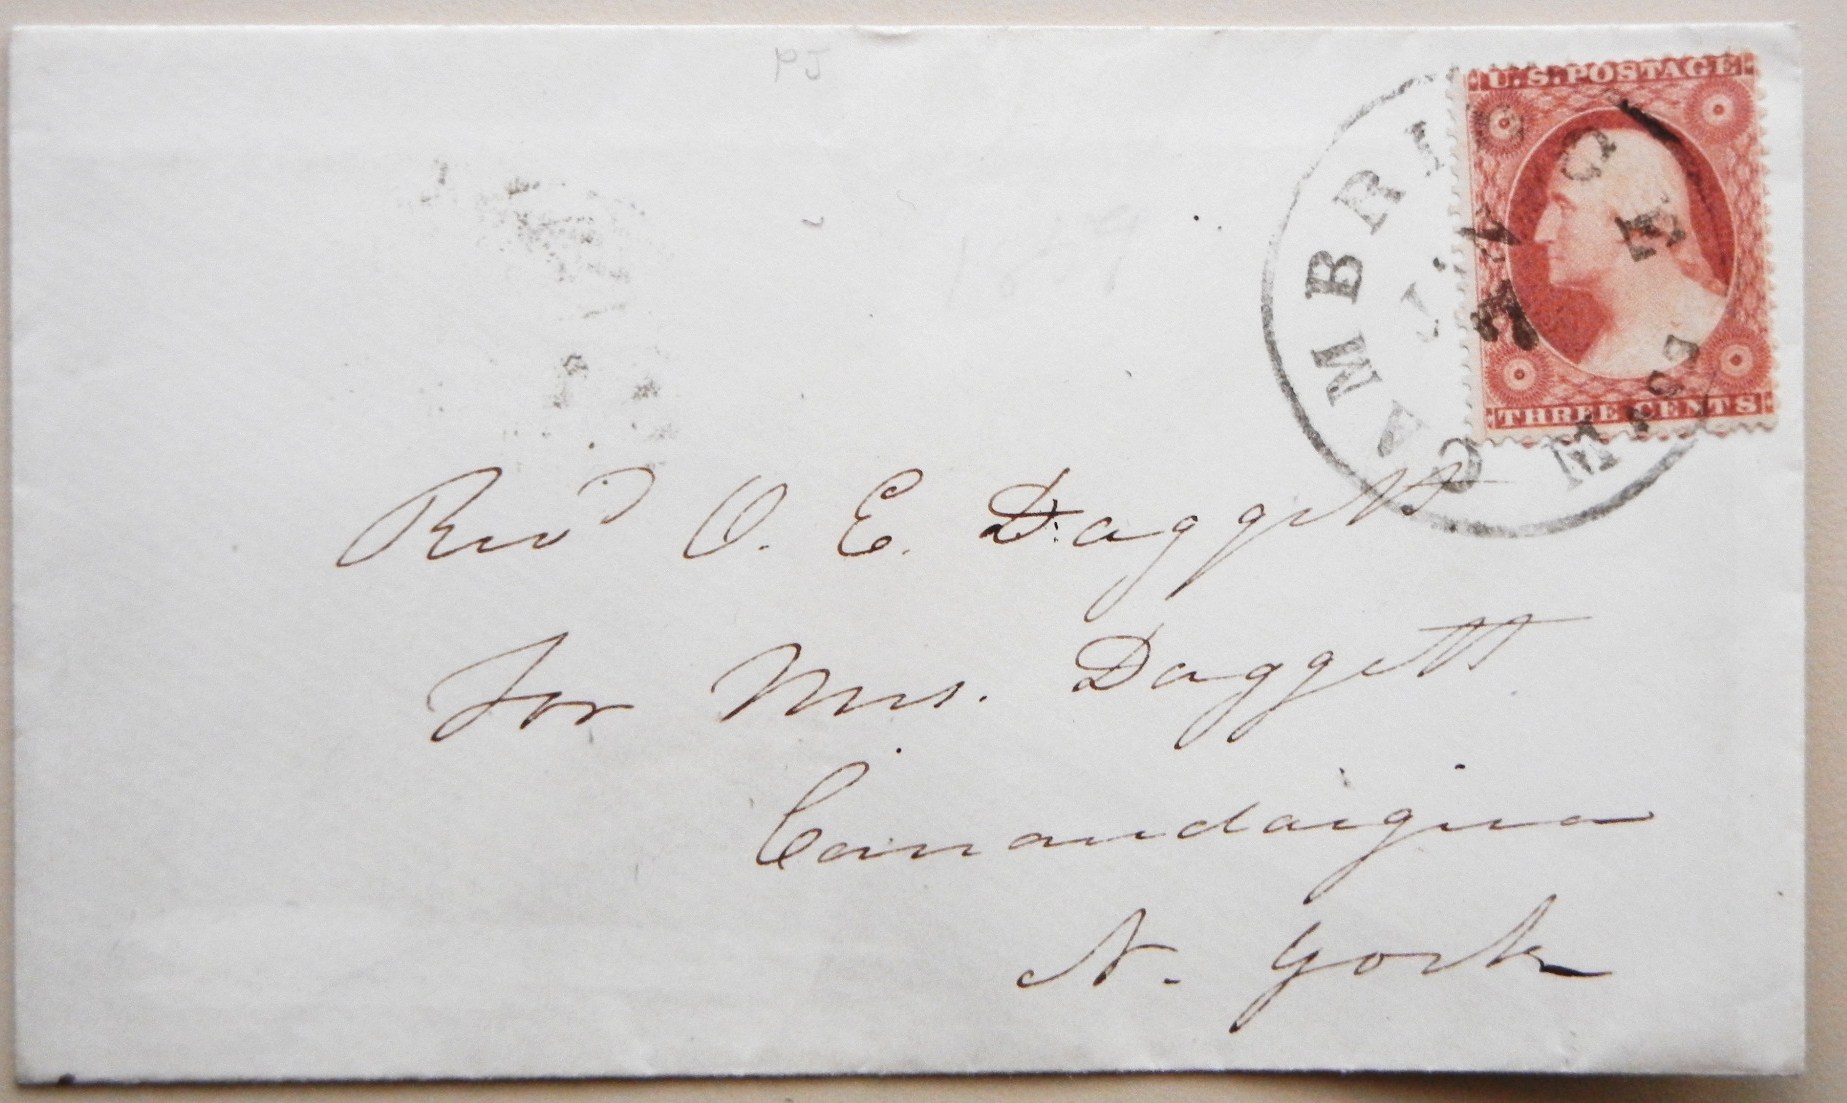 PJ
U.S. POSTAGE
CAMBRIDGE
MASS
THREE CENTS
Revd O. E. Daggett
For Mrs. Daggett
Canandaigua
N. York